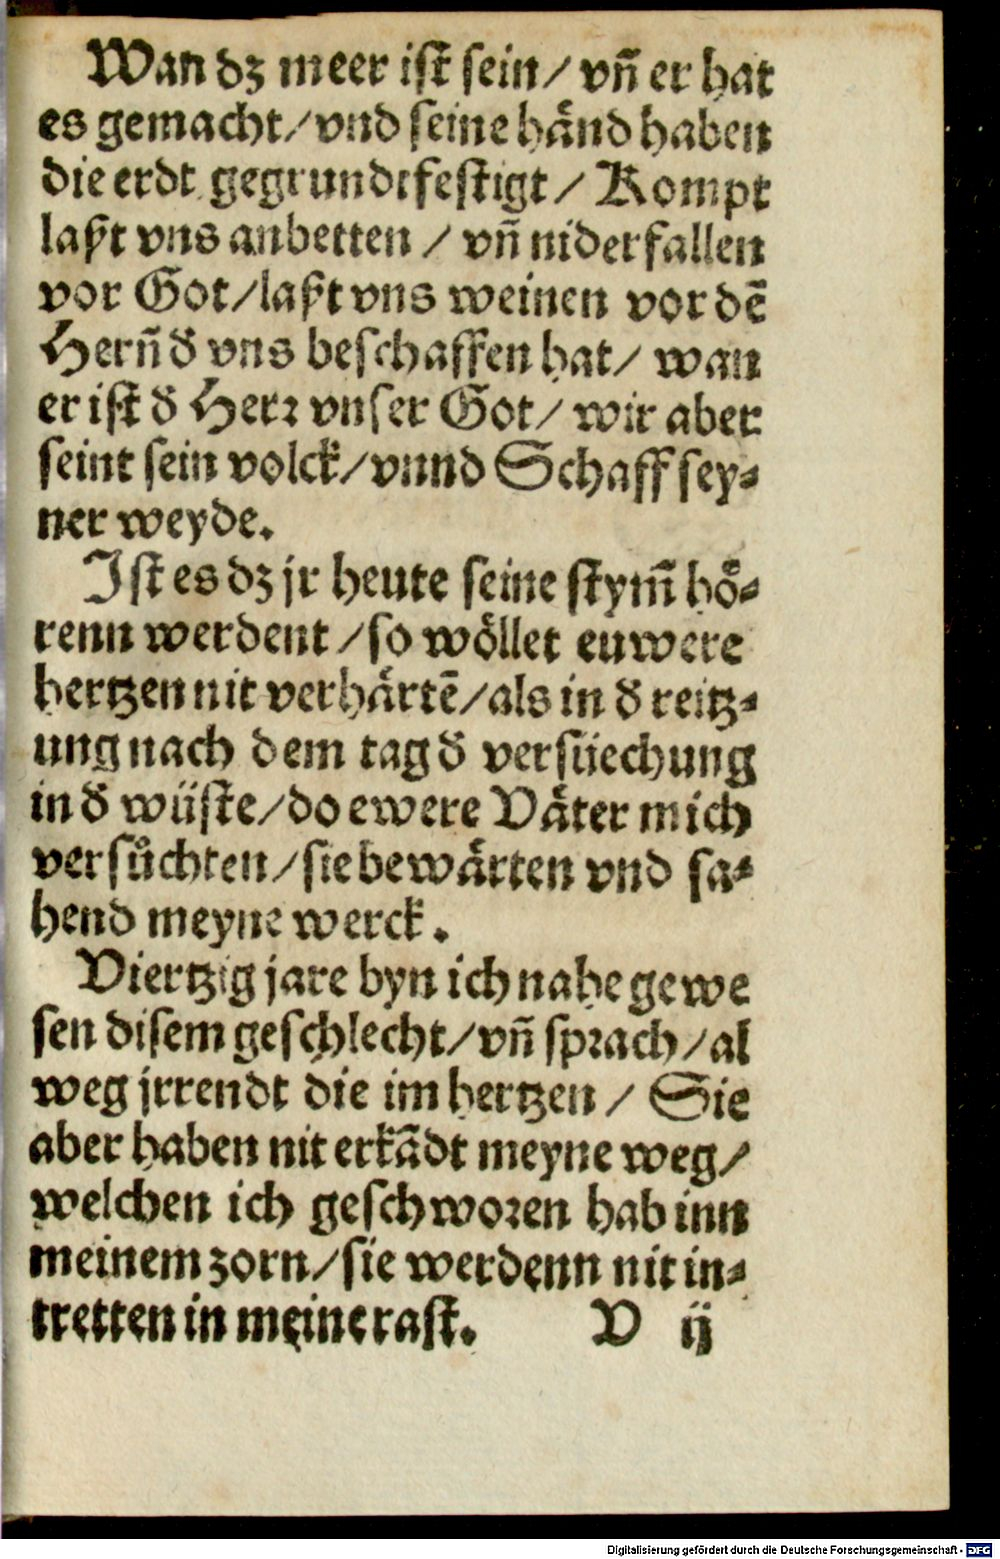 Wan dz meer iſt ſein/ vñ er hat
es gemacht/vnd ſeine haͤnd haben
die erdt gegrundtfeſtigt/ Kompt
laßt vns anbetten / vñ niderfallen
vor Got/laßt vns weinen vor dē
Herñ đ vns beſchaffen hat/ wan
er iſt đ Herꝛ vnſer Got/ wir aber
ſeint ſein volck/vnnd Schaff ſey-
ner weyde.
Iſt es dz jr heute ſeine ſtym̄ hoͤ-
renn werdent /ſo woͤllet euwere
hertzen nit verhaͤrtē/als in đ reitz-
ung nach dem tag đ verſuͤechung
in đ wuͤſte/do ewere Vaͤter mich
verſuͦchten/ſie bewaͤrten vnd ſa-
hend meyne werck.
Viertzig jare byn ich nahe gewe
ſen diſem geſchlecht/vñ ſpꝛach/al
weg jrrendt die im hertzen / Sie
aber haben nit erkādt meyne weg/
welchen ich geſchwoꝛen hab inn
meinem zorn/ſie werdenn nit in-
tretten in meine raſt. V ij
Digitalisierung gefördert durch die Deutsche Forschungsgemeinschaft - DFG